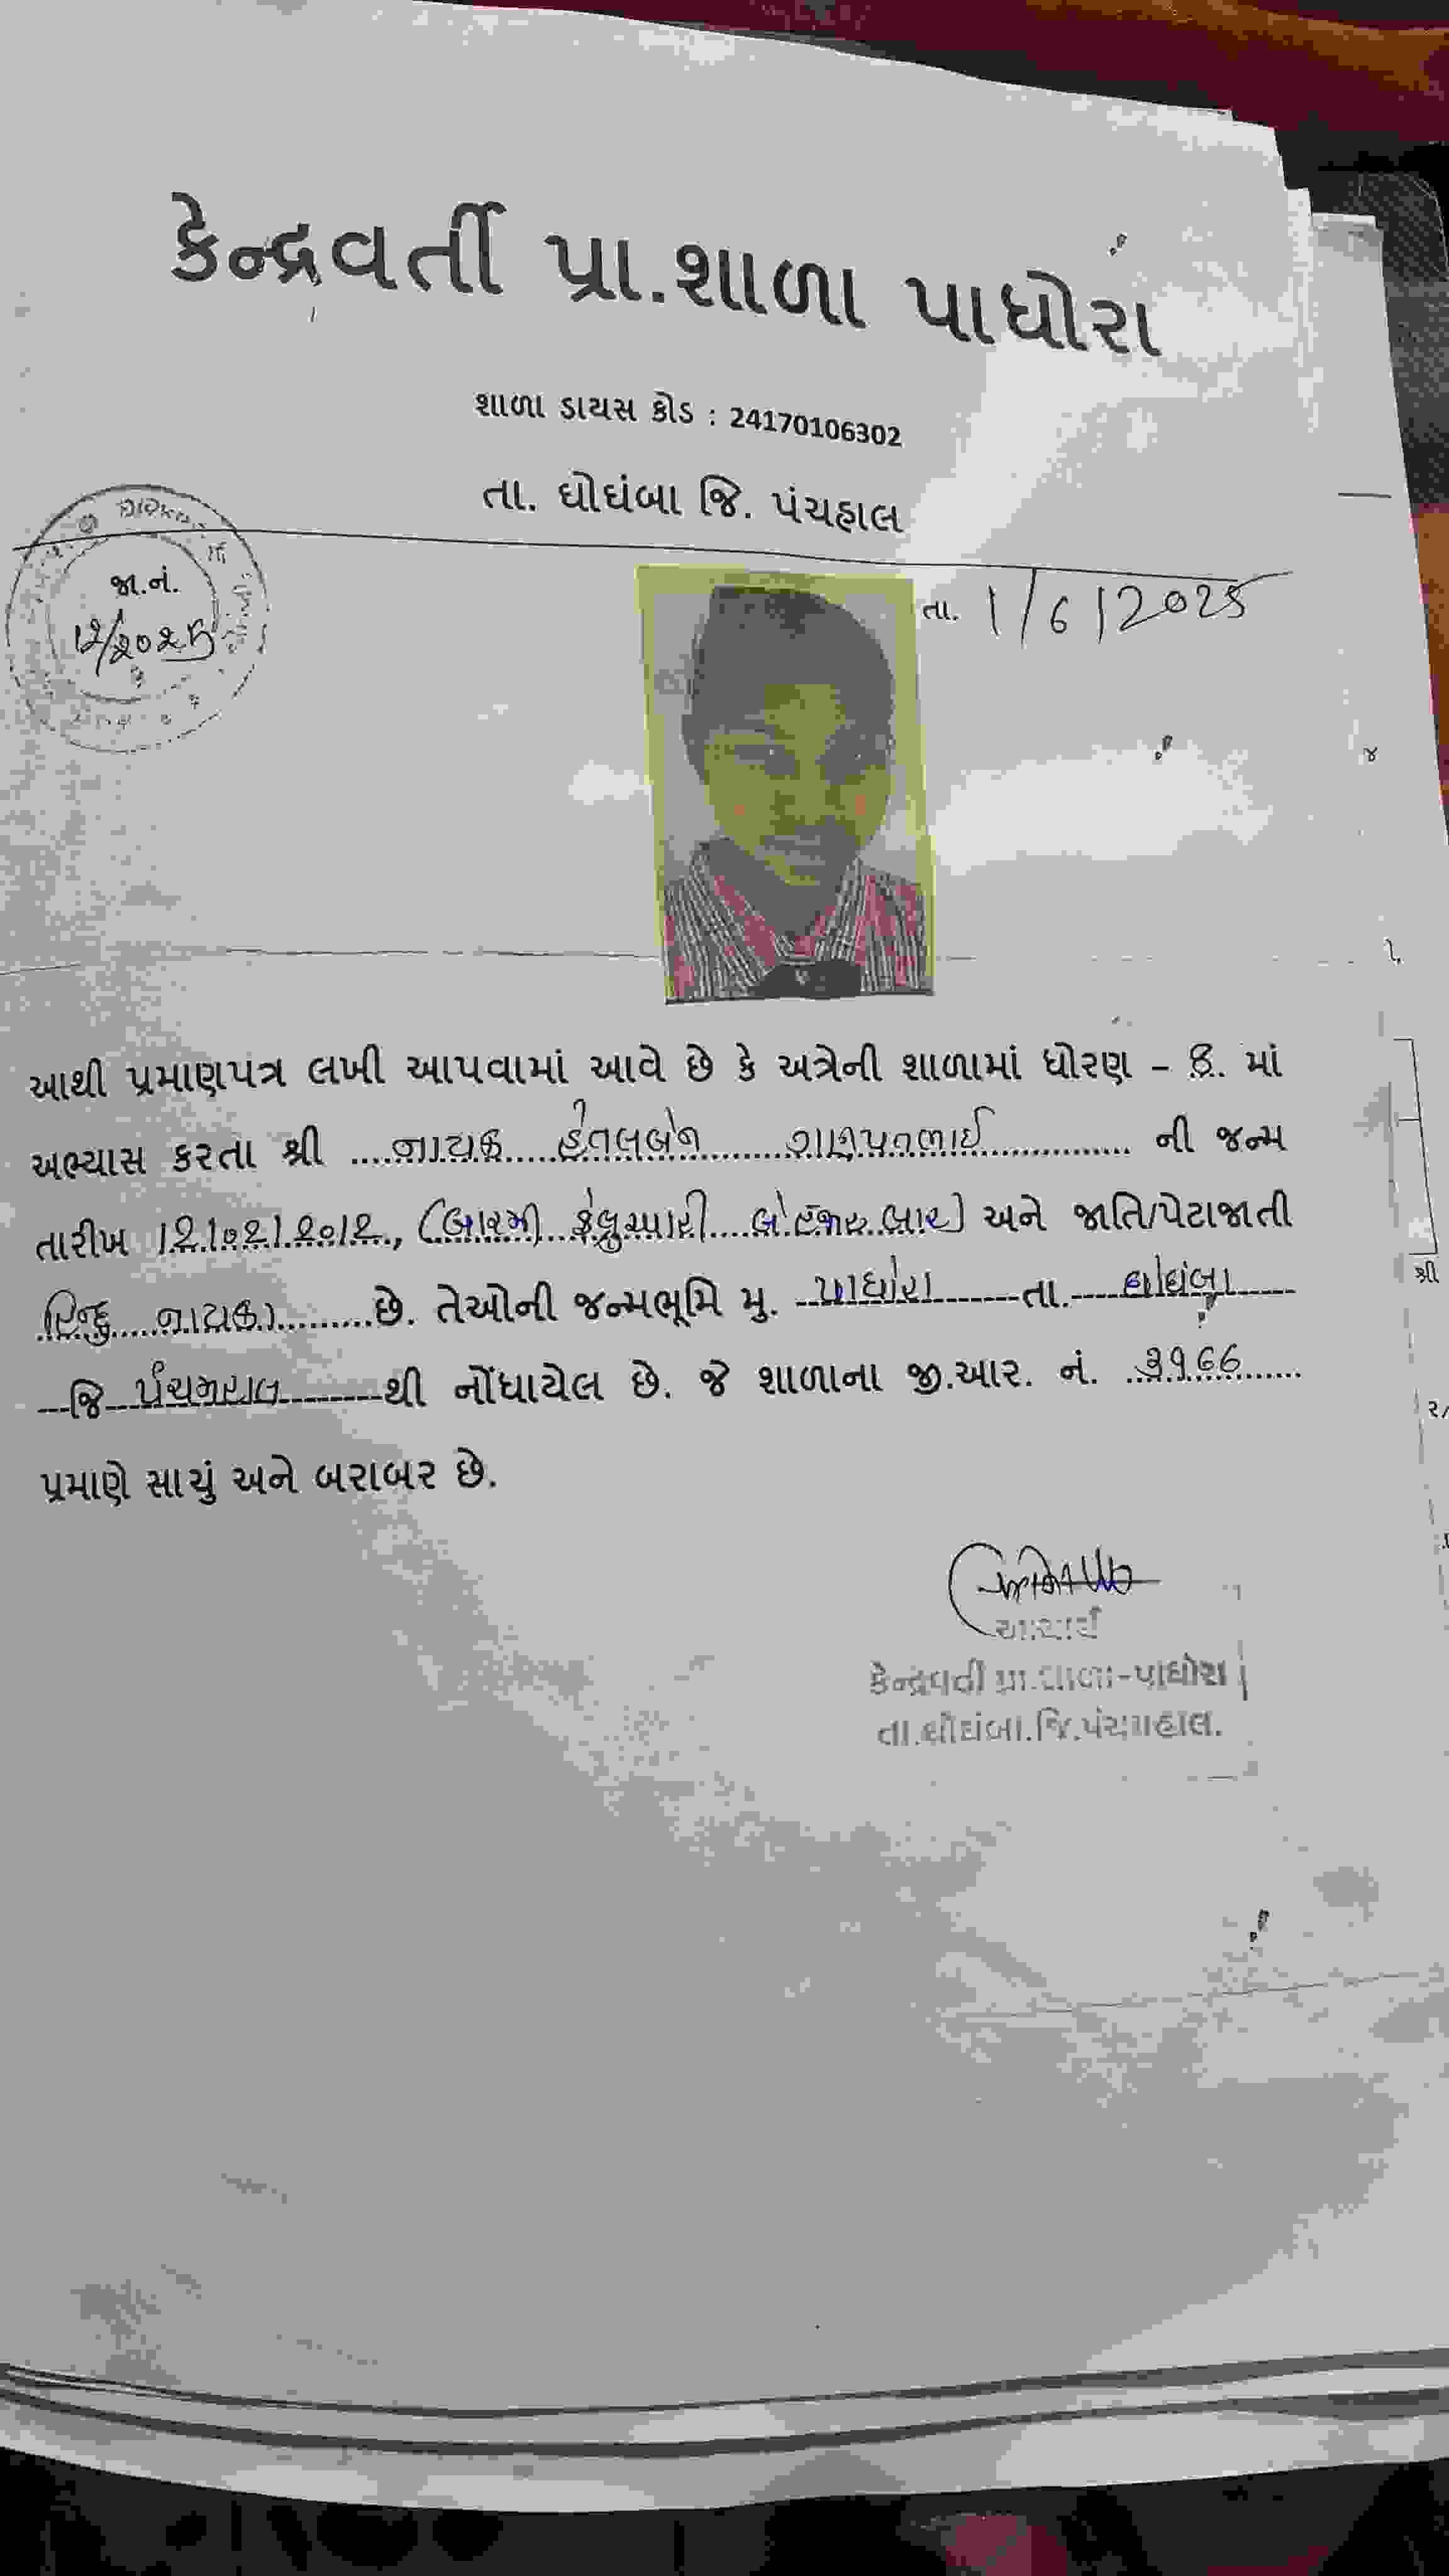 કેન્દ્રવર્તી પ્રા.શાળા પાધોરા
શાળા ડાયસ કોડ : 24170106302
તા. ઘોઘંબા જિ. પંચહાલ
જા.નં.
12/2025
તા. 1/6/2025
આથી પ્રમાણપત્ર લખી આપવામાં આવે છે કે અત્રેની શાળામાં ધોરણ - 8. માં
અભ્યાસ કરતા શ્રી નાયક હેતલબેન ગણપતભાઈ ની જન્મ
તારીખ ૧૨/૦૨/૨૦૧૨, (બારમી ફેબ્રુઆરી બે હજાર બાર) અને જાતિ/પેટાજાતી
હિન્દુ નાયકા છે. તેઓની જન્મભૂમિ મુ. પાધોરા તા. ઘોઘંબા
જિ પંચમહાલ થી નોંધાયેલ છે. જે શાળાના જી.આર. નં.
પ્રમાણે સાચું અને બરાબર છે.
આચાર્ય
કેન્દ્રવર્તી પ્રા.શાળા-પાધોરા
તા.ઘોઘંબા.જિ.પંચમહાલ.